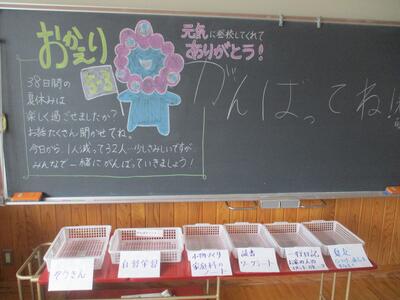 おかえり
5-3
元気に登校してくれて
ありがとう!
がんばってね!
38日間の
夏休みは
楽しく過ごせましたか?
お話たくさん聞かせてね。
今日から、1人減って32人…少しさみしいですが
みんなで一緒にがんばっていきましょう!
自由学習
家庭科の
ワークシート
一行日記